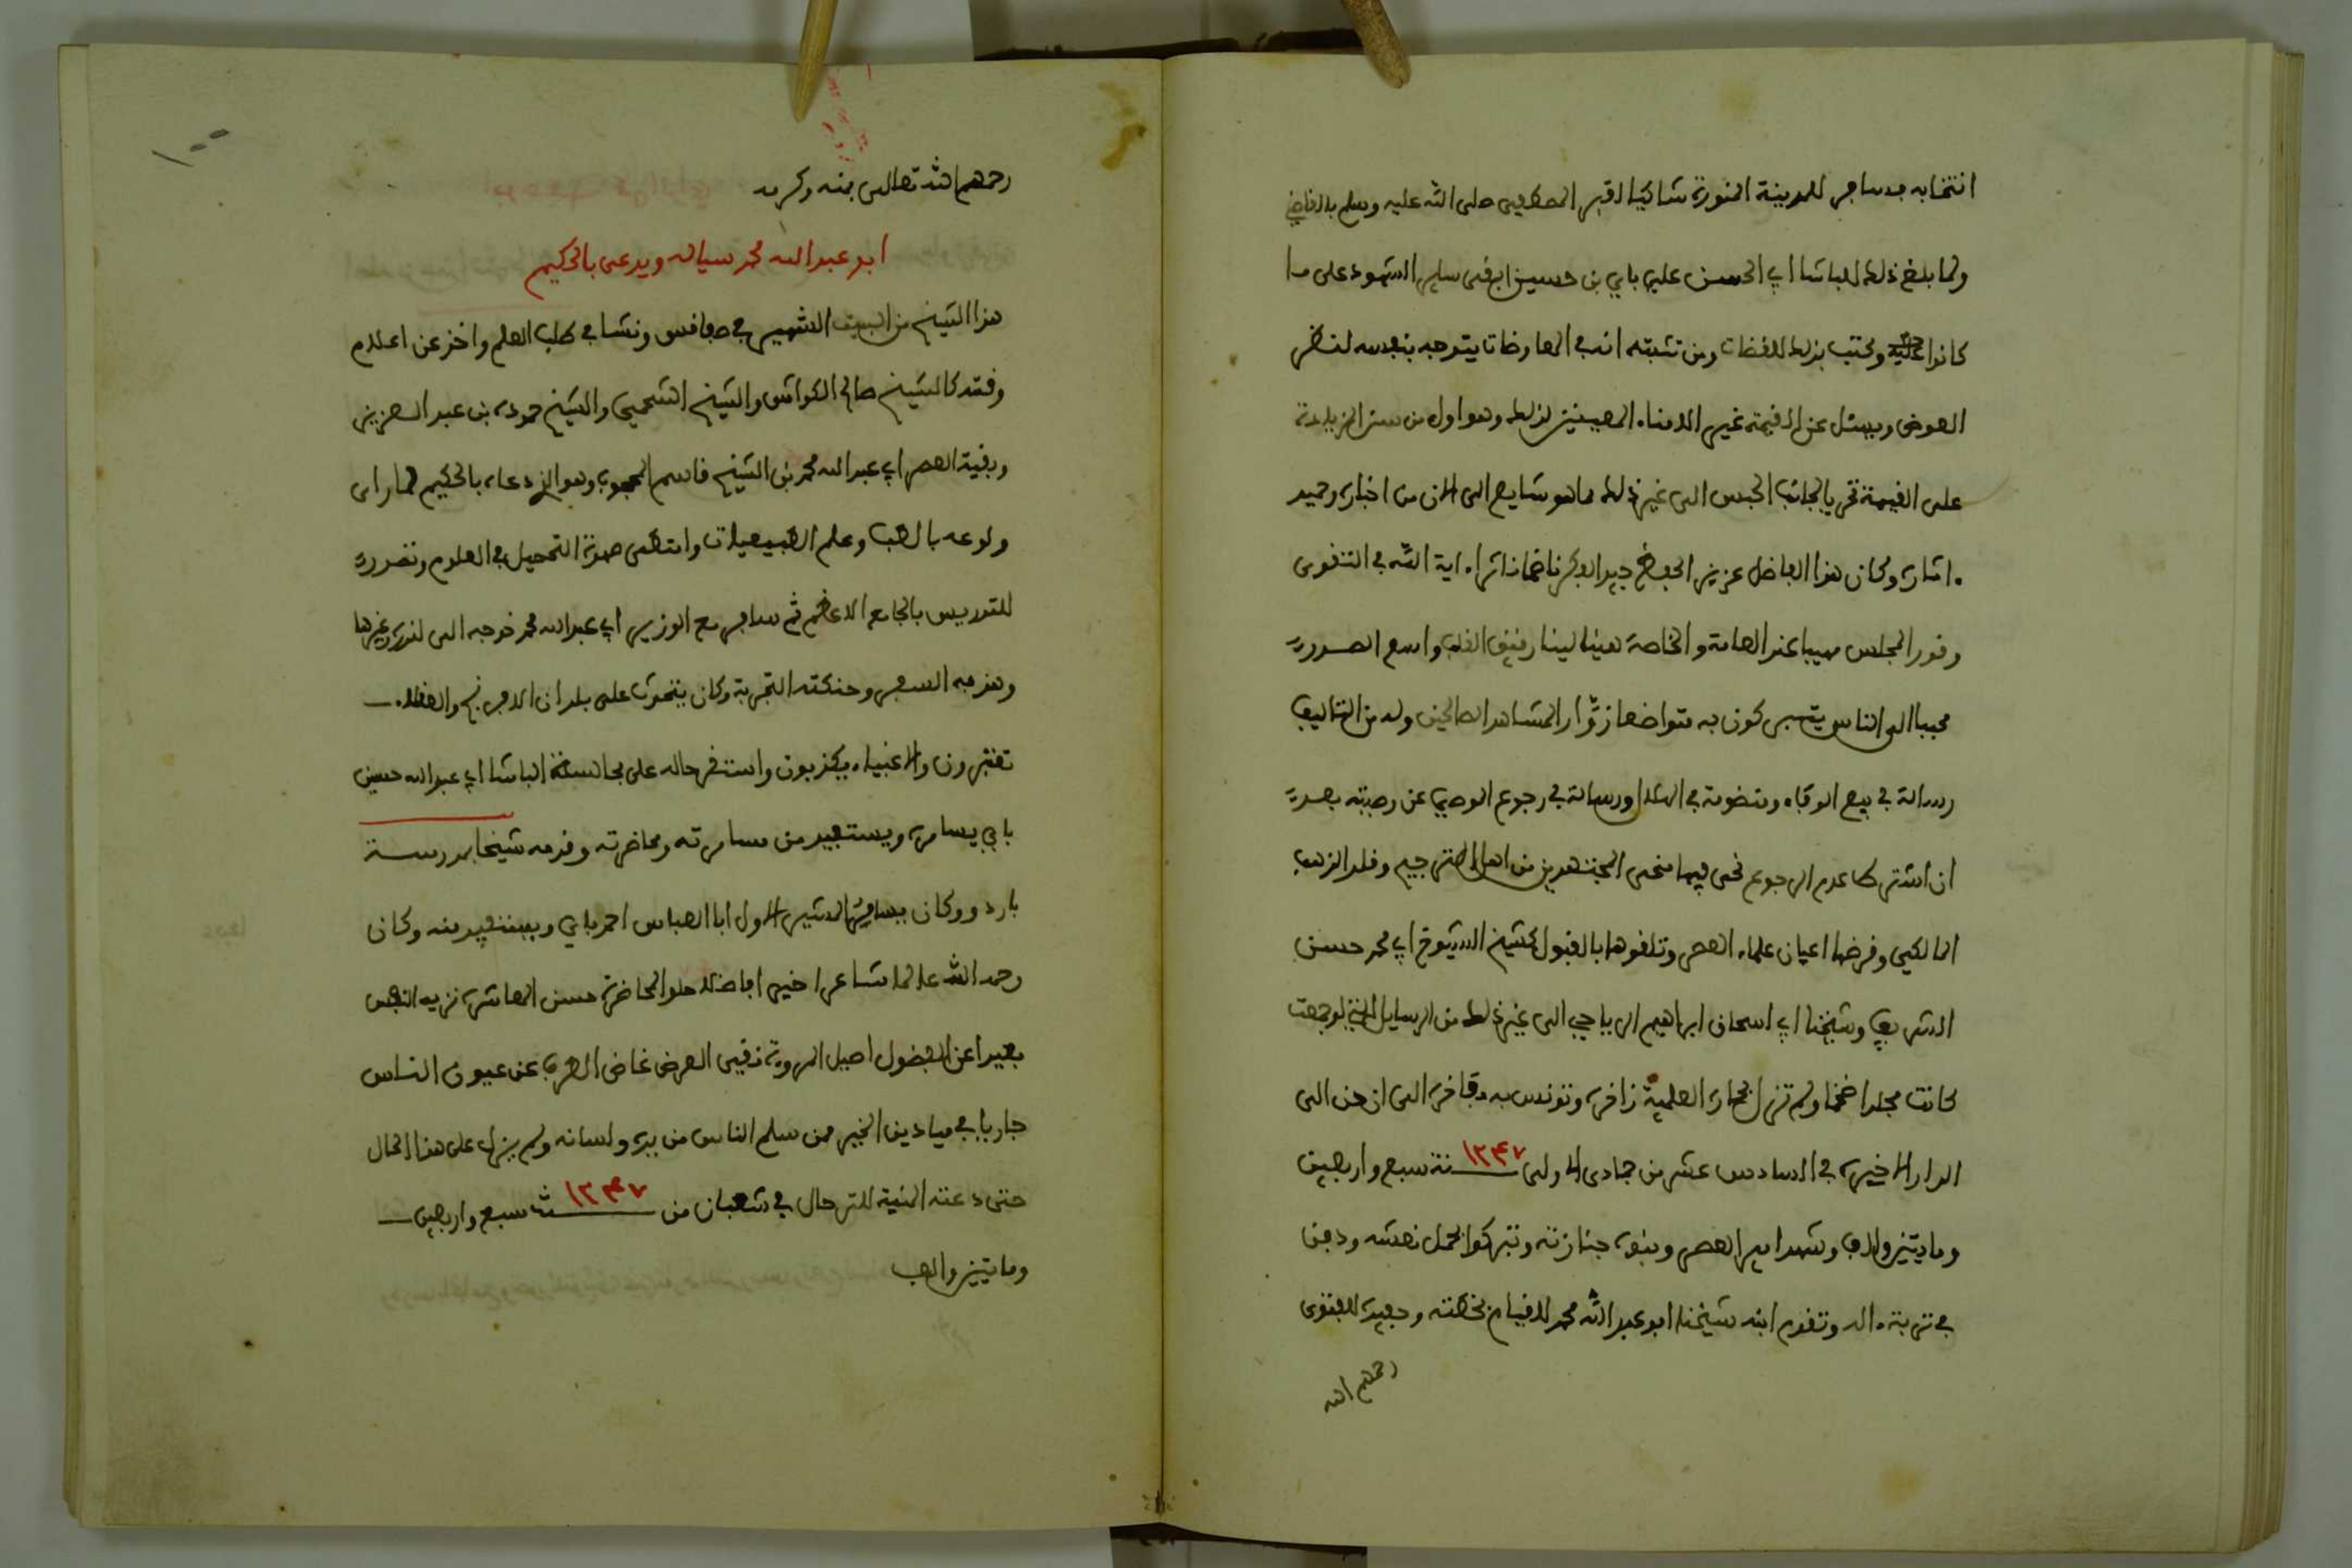 انتخابه فسافر للمدينة المنورة شاكيا لقبر المصطفى صلى الله عليه وسلم بالقاضي
ولما بلغ ذلك للباشا ابي الحسن علي باي بن حسين ابقى ساير الشهود على ما
كانوا عليه وكتب بذلك للقضات ومن تثبته انه في المعاوضات يتوجه بنفسه لنظر
العوض ويسئل عن القيمة غير الامناء المعينين لذلك وهو اول من سن الزيادة
على القيمة تحريا لجانب الحبس الى غير ذلك مما هو شايع الى الان من اخباره وحميد
اثاره وكان هذا الفاضل عزيز الحفظ جيد الفكر ناظما ناثرا ءاية الله في التقوى
وقور المجلس مهيبا عند العامة والخاصة هينا لينا رقيق القلب واسع الصدر
محببا الى الناس يتبركون به متواضعا زوّار المشاهد الصالحين وله من التئاليف
رسالة في بيع الوفاء ومنظومة في ورسالة في رجوع الموصي عن وصيته بعد
ان اشترط عدم الرجوع نحى فيها منحى المجتهدين من اهل الترجيح وقلد المذهب
المالكي وقرضها اعيان علماء العصر وتلقوها بالقبول كشيخ الشيوخ ابي محمد حسن
الشريف وشيخنا ابي اسحاق ابراهيم الرياحي الى غير ذلك من الرسايل التي لو جمعت
كانت مجلدا ضخما ولم تزل بحاره العلمية زاخرة وتونس به فاخرة الى ان حن الى
الدار الاخيرة في السادس عشر من جمادى الاولى ١٢٤٧ سنة سبع واربعين
ومايتين والف وشهد امير العصر وبنوه جنازته وتبركوا بحمل نعشه ودفن
في تربة ءاله وتقدم ابنه شيخنا ابو عبد الله محمد للقيام بخطته وحفيده للفتوى
رحمهم الله
١٠٠
رحمهم الله تعالى بمنه وكرمه
ابو عبد الله محمد سياله ويدعى بالحكيم
هذا الشيخ من البيت الشهير في صفاقس ونشا في طلب العلم واخذ عن اعلام
وقته كالشيخ صالح الكواش والشيخ الشحمي والشيخ حموده بن عبد العزيز
وبقية العصر ابي عبد الله محمد بن الشيخ قاسم المحجوب وهو الذي دعاه بالحكيم لما راى
ولوعه بالطب وعلم الطبيعيات وامتطى صهوة التحصيل في العلوم وتصدر
للتدريس بالجامع الاعظم ثم سافر مع الوزير ابي عبد الله محمد خوجه الى لندره وغيرها
وهذبه السفر وحنكته التجربة وكان يتحدث على بلدان الافرنج والعقلاء
تعتبرون والاغبياء يكذبون واستقر حاله على مجالسة الباشا ابي عبد الله حسين
باي يسامره ويستفيد من مسامرته ومحاضرته وقدمه شيخا بمدرسة
باردو وكان يسامر المشير الاول ابا العباس احمد باي ويستفيد منه وكان
رحمه الله عالما شاعرا خيرا فاضلا حلو المحاضرة حسن المعاشرة نزيه النفس
بعيدا عن الفضول اصيل المروة نقي العرض غاض الطرف عن عيوب الناس
جاريا في ميادين الخير ممن سلم الناس من يده ولسانه ولم يزل على هذا الحال
حتى دعته المنية للترحال في شعبان من ١٢٤٧ سنة سبع واربعين
ومايتين والف